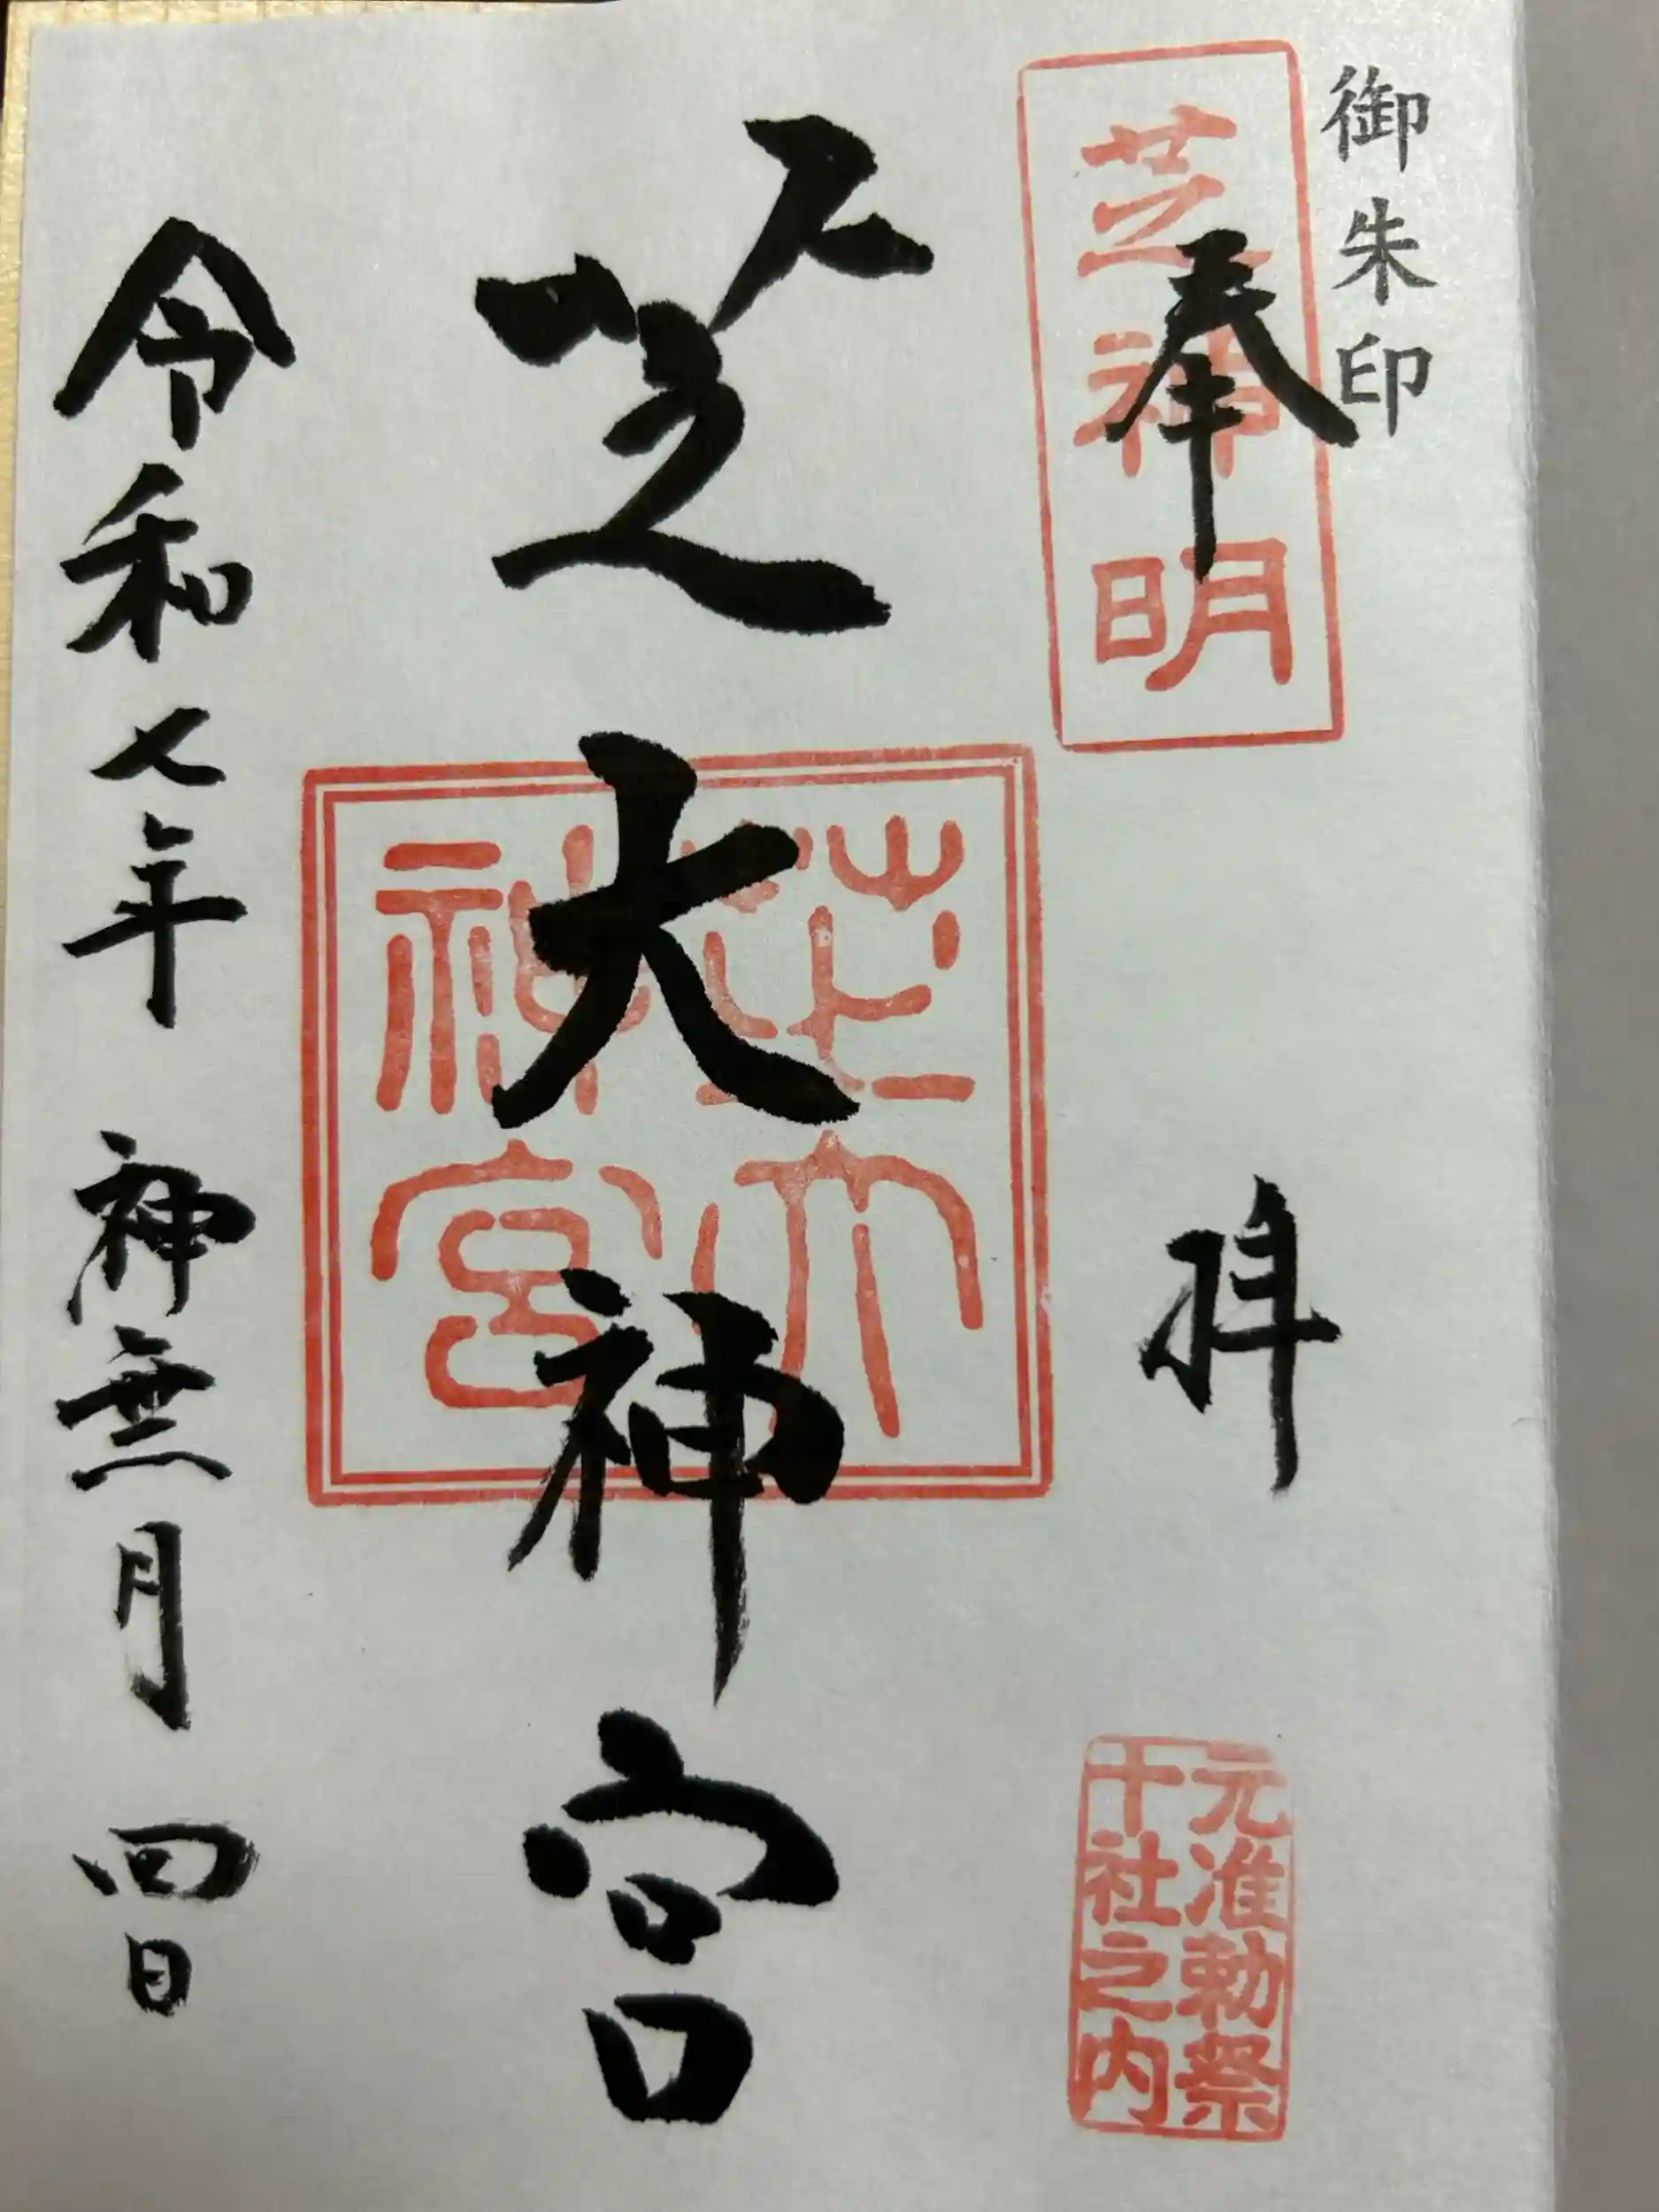 御朱印
芝神明
奉拝
元准勅祭
十社之内
芝大神宮
芝大
神宮
令和七年 神無月 四日